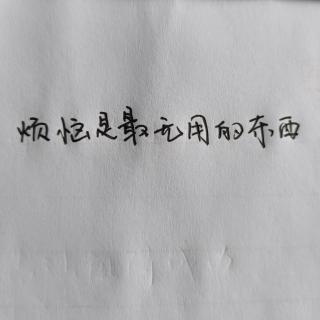 烦恼是最无用的东西